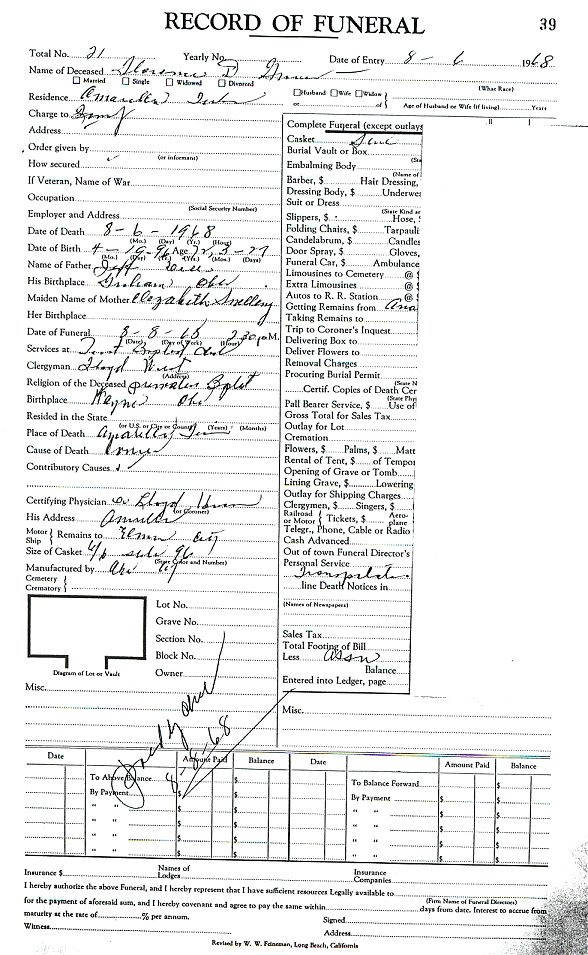 RECORD OF FUNERAL 39
Total No. 21 Yearly No. Date of Entry 8 - 6 1968
Name of Deceased Florence
Married Single Widowed Divorced
(What Race)
Husband Wife Widow
or of Age of Husband or Wife (if living) Years
Residence Amarillo
Charge to
Address
Order given by
(or informant)
How secured
If Veteran, Name of War
Occupation
(Social Security Number)
Employer and Address
Date of Death 8 - 6 - 1968
(Mo.) (Day) (Yr.) (Hour)
Date of Birth 4 - 10 - 96 Age 72, 3 - 27
(Mo.) (Day) (Yr.) (Yrs.) (Mo.) (Days)
Name of Father Jeff
His Birthplace Graham
Maiden Name of Mother Elizabeth
Her Birthplace
Date of Funeral 8 - 8 - 68 2:30 P.M.
(Date) (Day of Week) (Hour)
Services at First Baptist
Clergyman Lloyd West
(Address)
Religion of the Deceased
Birthplace Wayne
Resided in the State
(or U.S. or City or County) (Years) (Months)
Place of Death
Cause of Death
Contributory Causes
Certifying Physician Dr Lloyd
(or Coroner)
His Address Amarillo
Motor Ship } Remains to City
Size of Casket 6/6
(State Color and Number)
Manufactured by
Cemetery
Crematory }
Lot No.
Grave No.
Section No.
Block No.
Owner
Diagram of Lot or Vault
Misc.
Complete Funeral (except outlays
Casket
Burial Vault or Box
(Sta
Embalming Body
(Name of
Barber, $ Hair Dressing,
Dressing Body, $ Underwe
Suit or Dress
(State Kind ar
Slippers, $ Hose,
Folding Chairs, $ Tarpauli
Candelabrum, $ Candles
Door Spray, $ Gloves,
Funeral Car, $ Ambulance
Limousines to Cemetery @ $
Extra Limousines @ $
Autos to R. R. Station @ $
Getting Remains from Ama
Taking Remains to
Trip to Coroner's Inquest
Delivering Box to
Deliver Flowers to
Removal Charges
Procuring Burial Permit
(State N
Certif. Copies of Death Cer
(State Phys
Pall Bearer Service, $ Use of
Gross Total for Sales Tax
Outlay for Lot
Cremation
Flowers, $ Palms, $ Matt
Rental of Tent, $ of Tempor
Opening of Grave or Tomb
Lining Grave, $ Lowering
Outlay for Shipping Charges
Clergymen, $ Singers, $
Railroad or Motor { Tickets, $ Aero-plane
Telegr., Phone, Cable or Radio
Cash Advanced
Out of town Funeral Director's
Personal Service
line Death Notices in
(Names of Newspapers)
Sales Tax
Total Footing of Bill
Less Assn
Balance
Entered into Ledger, page
Misc.
Date Amount Paid Balance Date Amount Paid Balance
To Above Balance $ To Balance Forward $
By Payment $ By Payment $
" " $ " " $
" " $ " " $
" " $ " " $
" " $ " " $
Insurance $ Names of Lodges Insurance Companies
I hereby authorize the above Funeral, and I hereby represent that I have sufficient resources Legally available to
(Firm Name of Funeral Directors)
for the payment of aforesaid sum, and I hereby covenant and agree to pay the same within days from date. Interest to accrue from
maturity at the rate of % per annum. Signed
Witness Address
Revised by W. W. Feineman, Long Beach, California